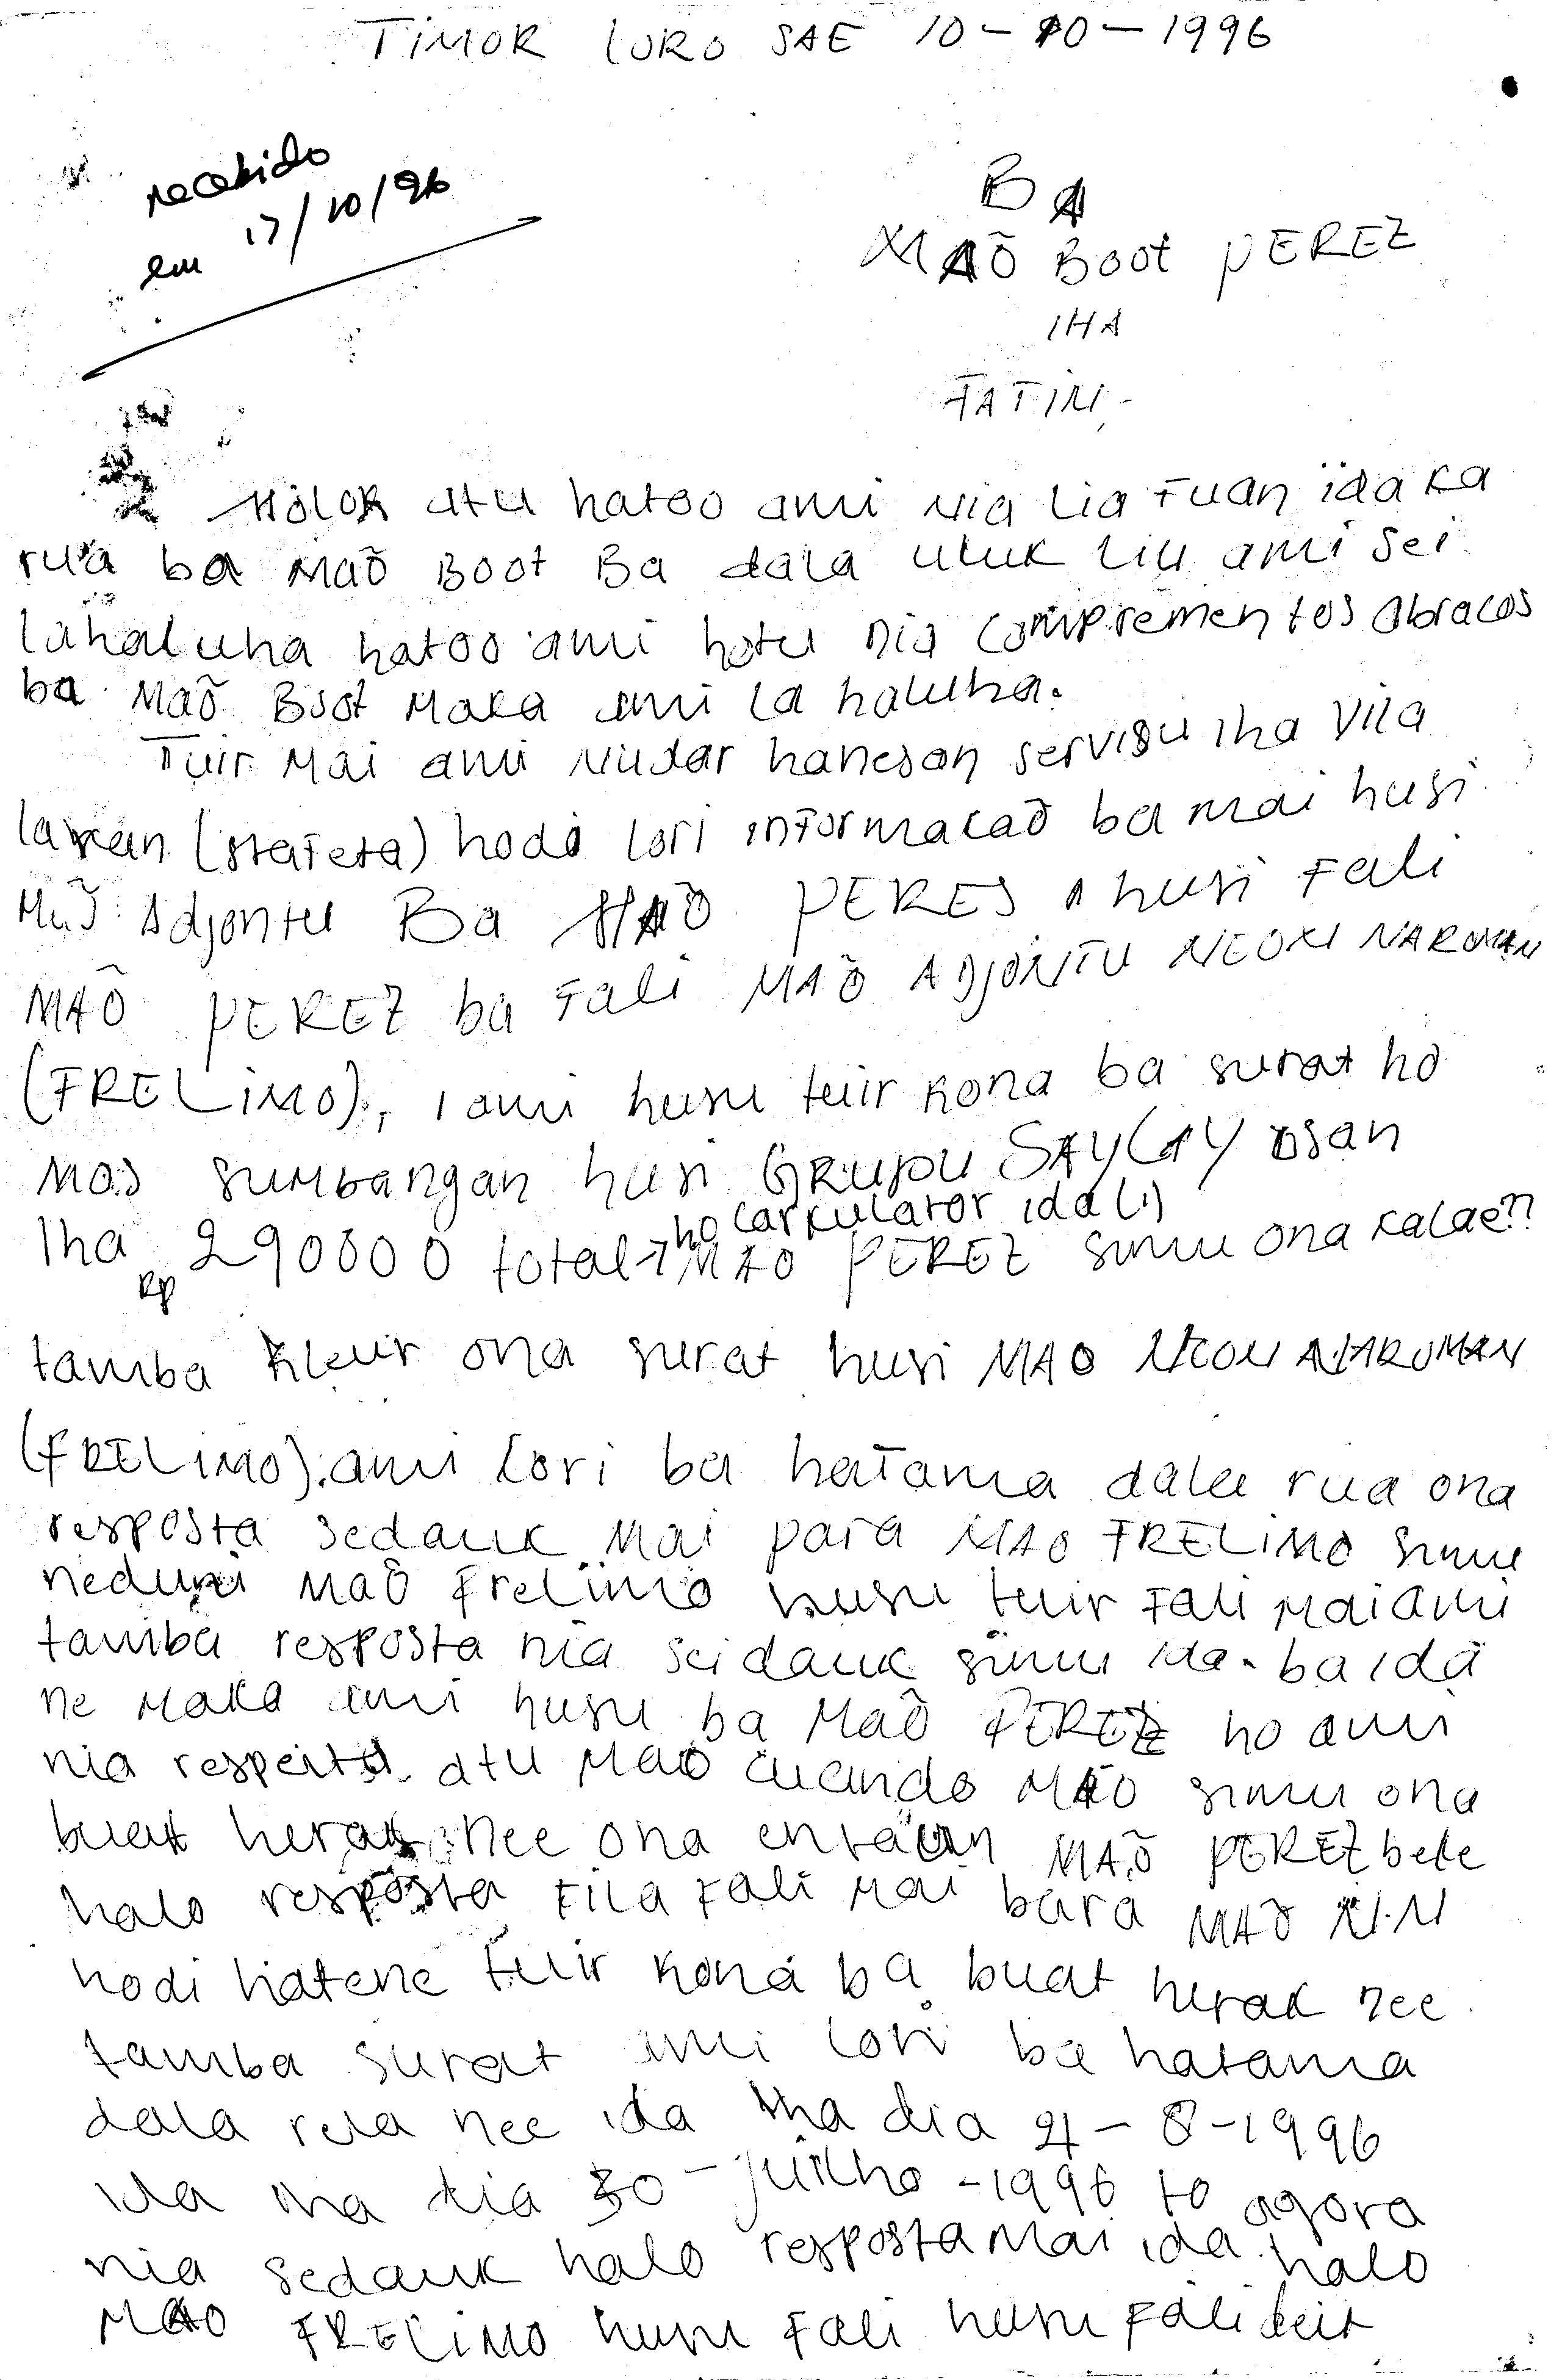 TIMOR LORO SAE 10-10-1996
recebido
em 17/10/96
BA
MAÕ BOOT PEREZ
IHA
FATIN,-
Molok atu hatoo ami nia lia fuan ida ka
rua ba Maõ Boot Ba dala uluk liu ami sei
lahaluha hatoo ami hotu nia comprementos abracos
ba Maõ Boot Maka ami la haluha.
Tuir Mai ami nudar hanesan servisu iha Vila
laran (stafeta) hodi lori informacaõ ba mai husi
Maõ Adjontu Ba MAÕ PERES i husi fali
MAÕ PEREZ ba fali MAÕ ADJONTU NEON NAROMAN
(FRELIMO), i ami husu tuir kona ba surat ho
mos sumbangan husi GRUPU SAYLAY osan
Iha Rp 290000 total ho carkulator ida (1) MAO PEREZ simu ona kalae??
tamba kleur ona surat husi MAO NEON NAROMAN
(FRELIMO). ami lori ba hatama dala rua ona
resposta sedauk mai para MAO FRELIMO simu
neduni Maõ Frelimo husu tuir fali mai ami
tamba resposta nia seidauk simu ida. ba ida
ne Maka ami husu ba Maõ PEREZ ho ami
nia respeito. atu Maõ cuando MAO simu ona
buat herak nee ona entaun MAÕ PEREZ bele
halo resposta fila fali mai bara MAÕ N.N
hodi hatene tuir kona ba buat herak nee
tamba surat ami lori ba hatama
dala rua nee ida iha dia 21-8-1996
ida iha dia 30-juilho-1996 to agora
nia sedauk halo resposta mai ida. halo
MAO FRELIMO husu fali husu fali deit